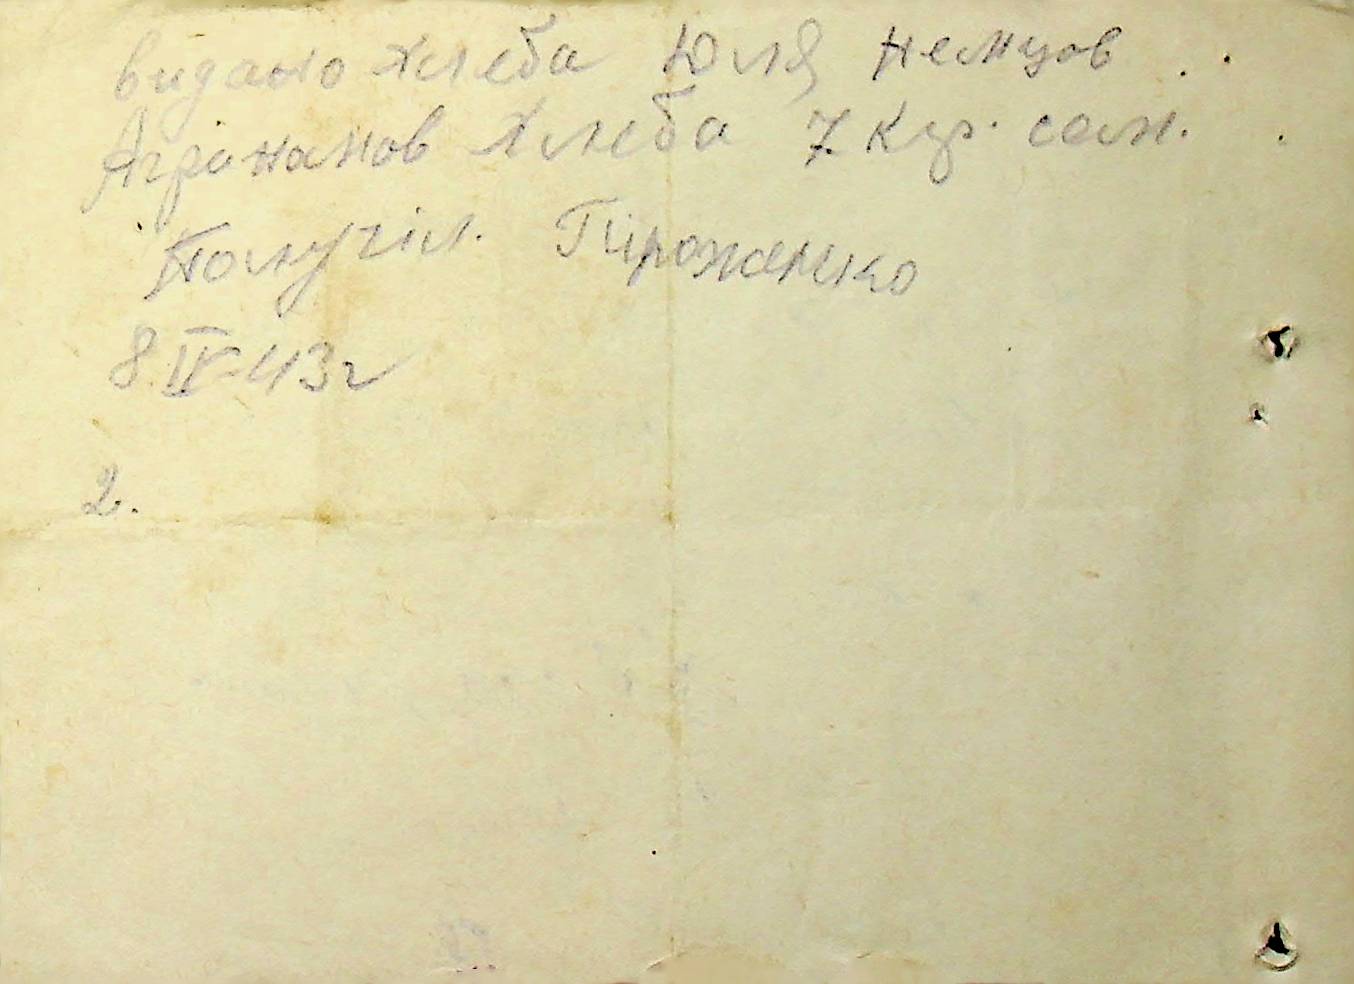 видано хлеба Юля немцов
Агранамов хлеба 7 кгр. сам.
Получіл. Пироженко
8 IV-43г
2.